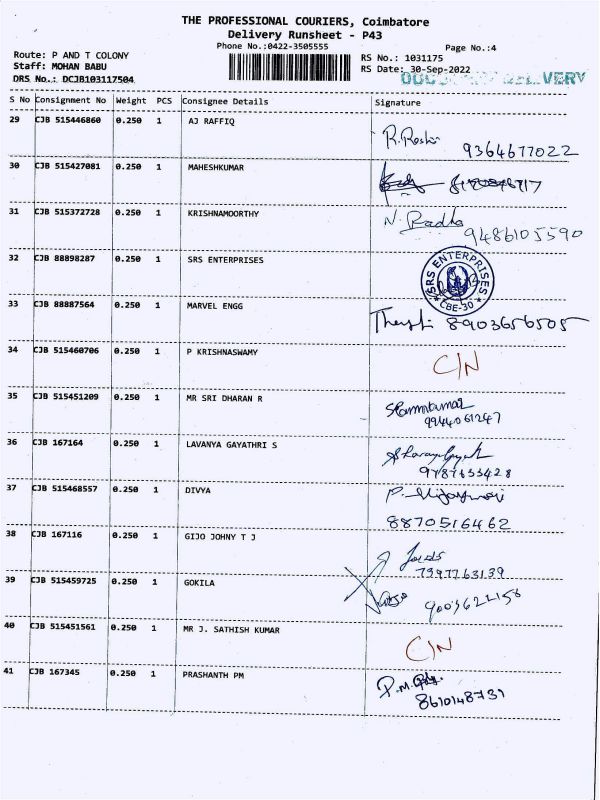 THE PROFESSIONAL COURIERS, Coimbatore
Delivery Runsheet - P43
Phone No.:0422-3505555
Page No.:4
Route: P AND T COLONY
RS No.: 1031175
Staff: MOHAN BABU
RS Date: 30-Sep-2022
DRS No.: DCJB103117504
VERY
S No Consignment No Weight PCS Consignee Details Signature
29 CJB 515446860 0.250 1 AJ RAFFIQ
9364677022
30 CJB 515427081 0.250 1 MAHESHKUMAR
31 CJB 515372728 0.250 1 KRISHNAMOORTHY N. Radha
9486105590
32 CJB 88898287 0.250 1 SRS ENTERPRISES
SRS ENTERPRISES
CBE-30
33 CJB 88887564 0.250 1 MARVEL ENGG
8903656505
34 CJB 515460706 0.250 1 P KRISHNASWAMY C/N
35 CJB 515451209 0.250 1 MR SRI DHARAN R
9944061247
36 CJB 167164 0.250 1 LAVANYA GAYATHRI S
9787633428
37 CJB 515468557 0.250 1 DIVYA
8870516462
38 CJB 167116 0.250 1 GIJO JOHNY T J
7397763139
39 CJB 515459725 0.250 1 GOKILA
9003622158
40 CJB 515451561 0.250 1 MR J. SATHISH KUMAR C/N
41 CJB 167345 0.250 1 PRASHANTH PM P.M.
8610148731